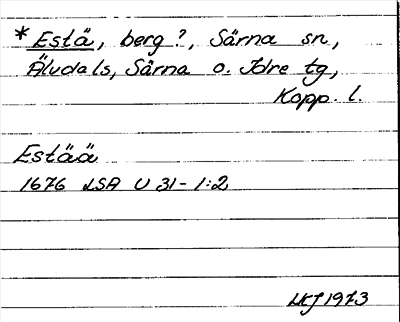 * Estä, berg?, Särna sn,
Äludals, Särna o. Idre tg,
Kopp. l.
Estää
1676 LSA U 31-1:2
HKJ 1973